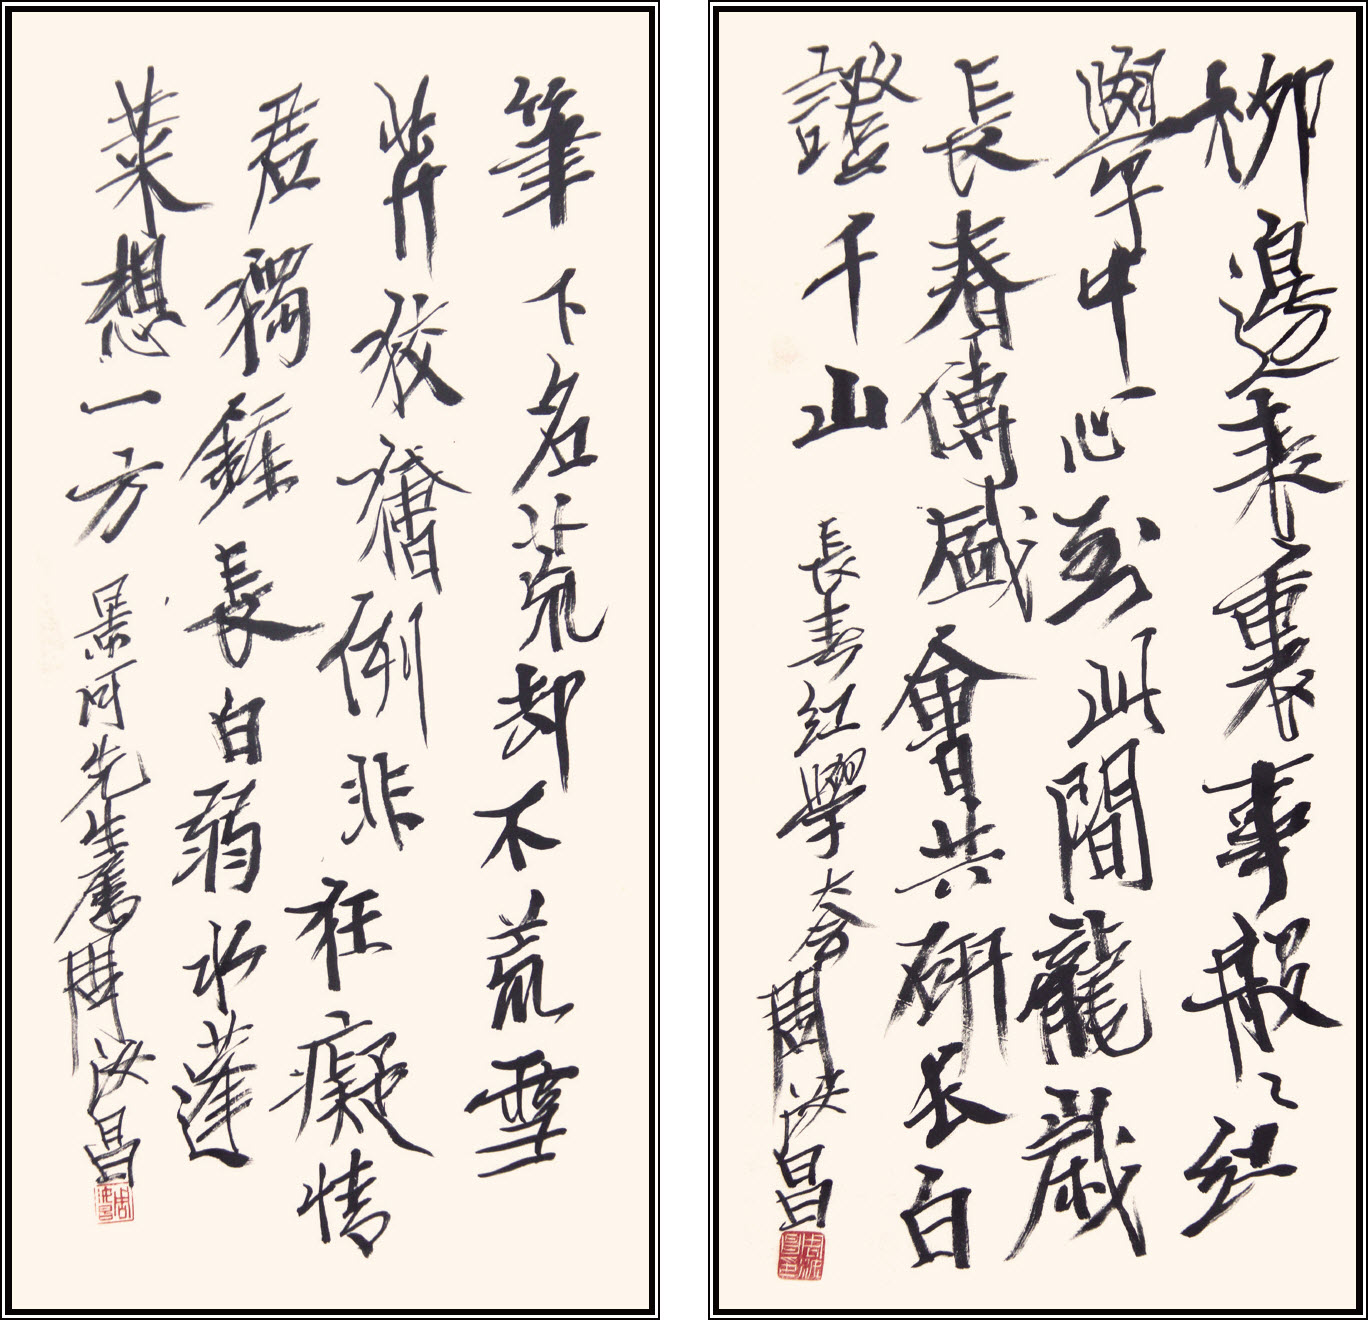 柳邊表裏事般〻紅
學中心到此間龍歲
長春傳盛會共研长白
證千山
長春紅學大會周汝昌
筆下名荒却不荒雪
芹狡獪例非狂癡情
君獨鍾長白弱水蓬
萊想一方
景河先生周汝昌